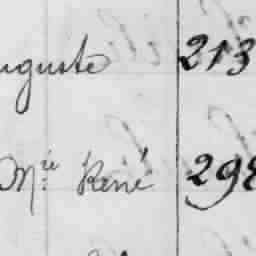 uguste 213
Mie René 298